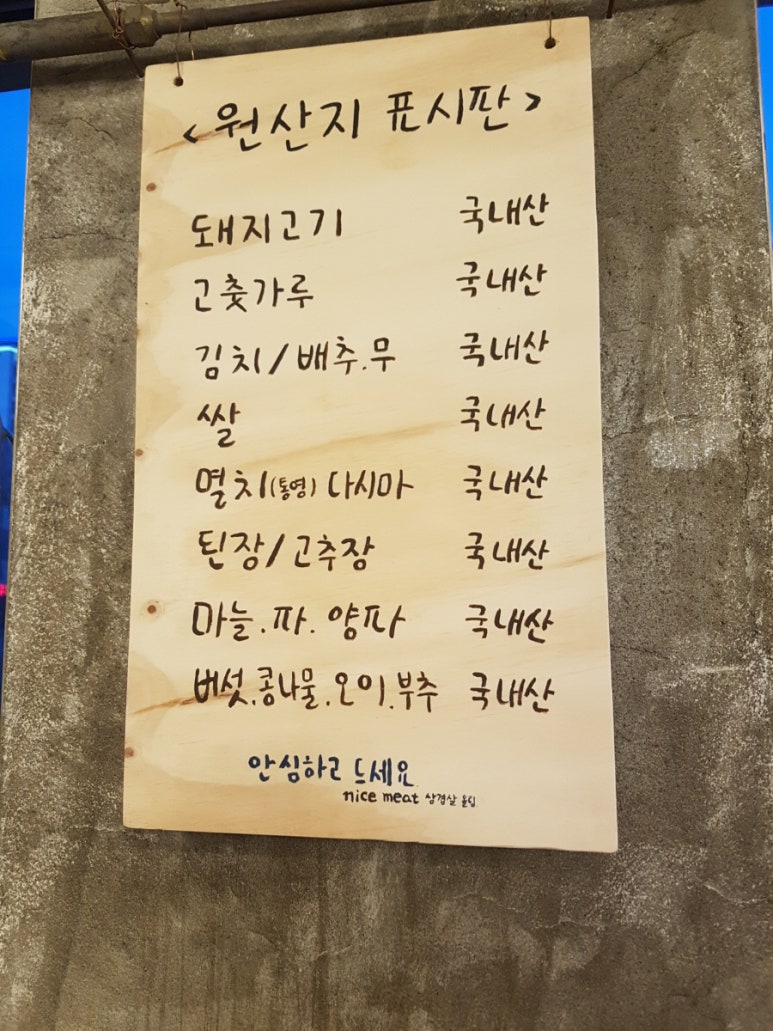 <원산지 표시판>
돼지고기 국내산
고춧가루 국내산
김치/배추.무 국내산
쌀 국내산
멸치(통영) 다시마 국내산
된장/고추장 국내산
마늘.파.양파 국내산
버섯.콩나물.오이.부추 국내산
안심하고 드세요.
nice meat 삼겹살 올림